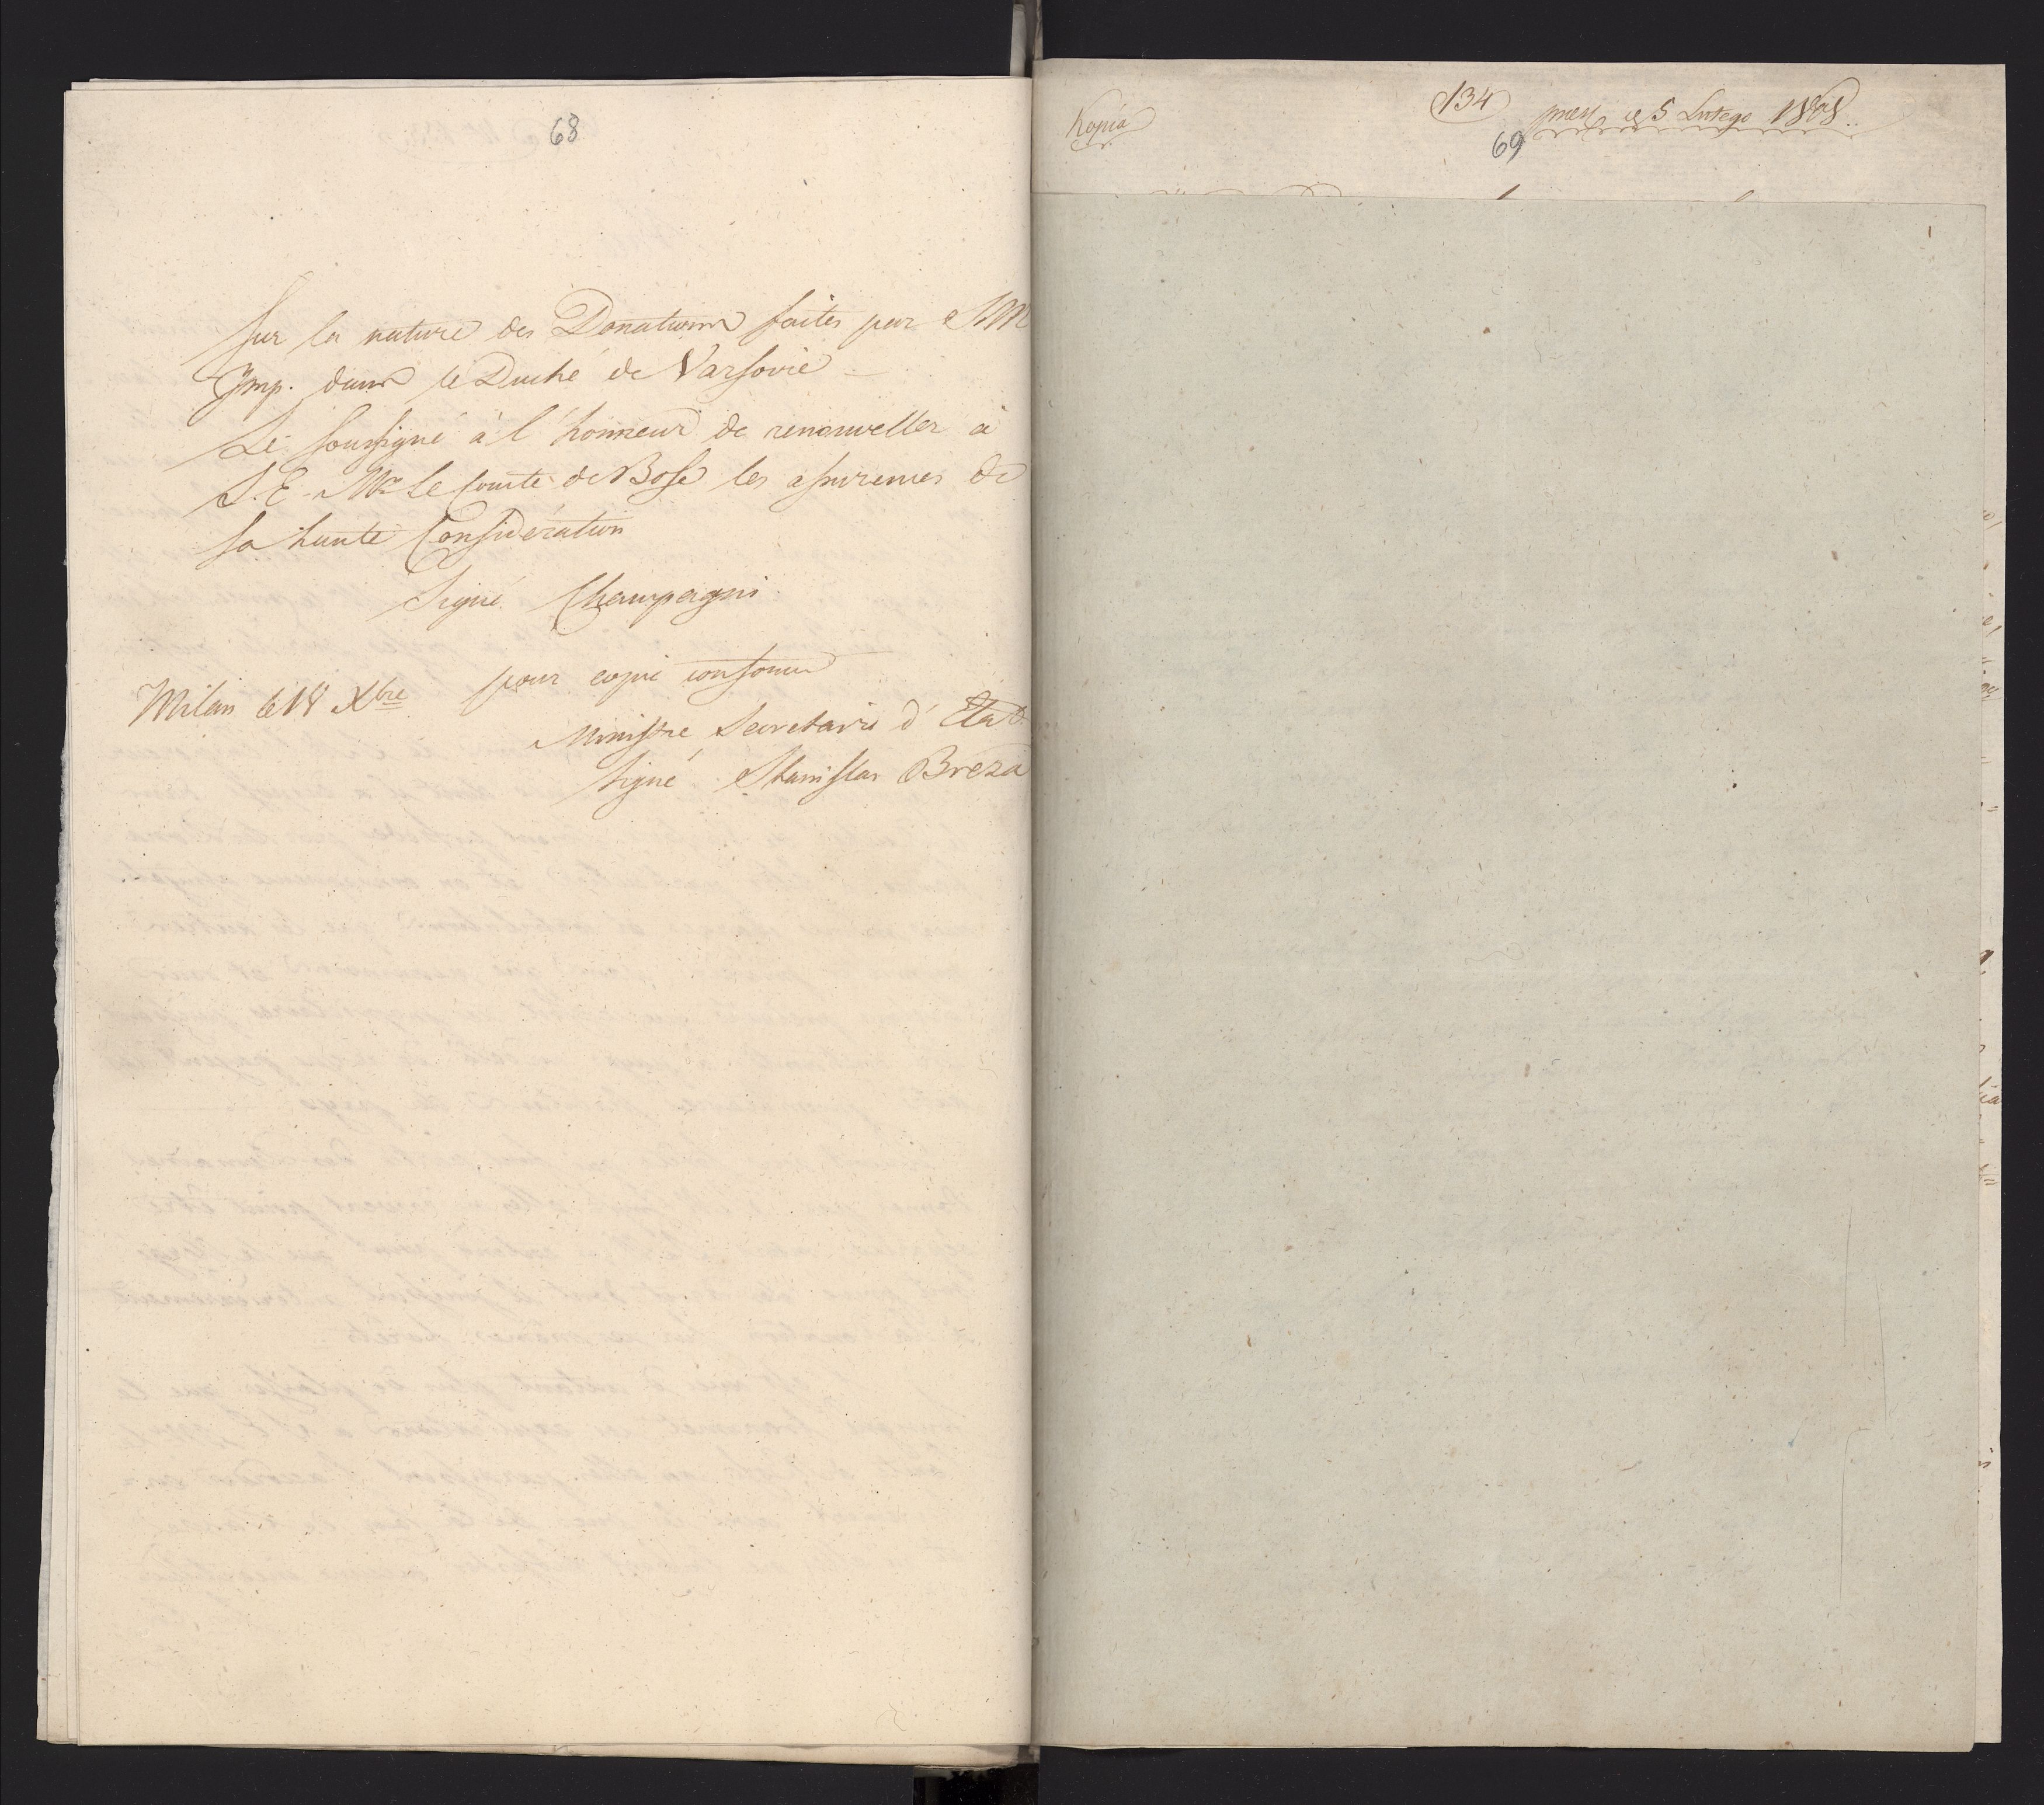 68
sur la nature des Donations faites par S M
Imp. dans le Duché de Varsovie
Le soussigné à l'honneur de renouveller à
S. E. Mr le Comte de Bose les assurences de
sa haute Considération
Signé Champagni
pour copie conforme
Milan le 18 Xbre
Ministre Secretaire d'Etat
signé Stanislas Breza
Kopia
134
pres d 5 Lutego 1808
69